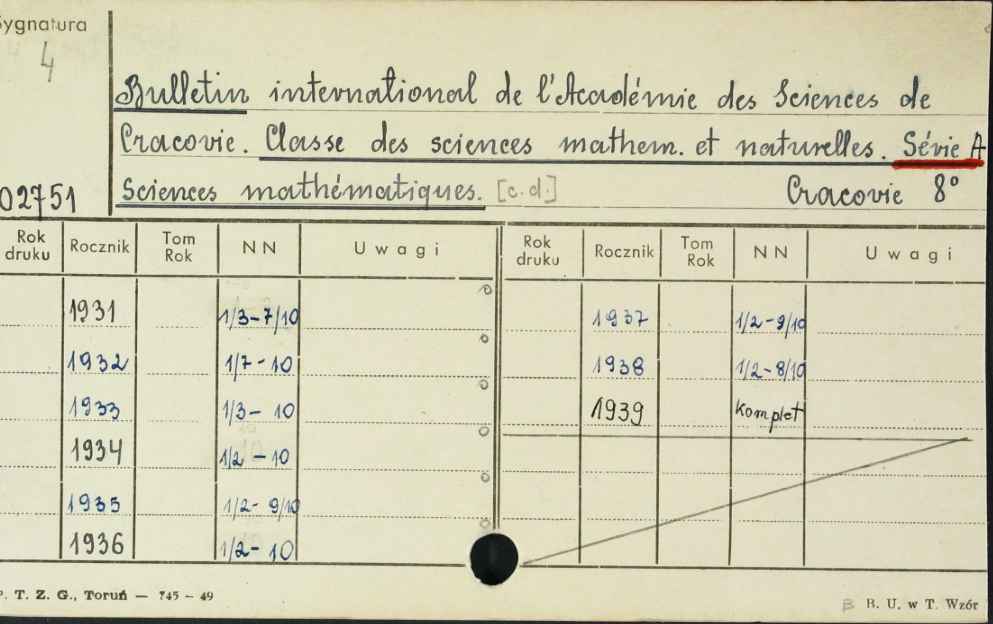 Sygnatura
4
Bulletin international de l'Académie des Sciences de
Cracovie. Classe des sciences mathem. et naturelles. Série A
Sciences mathématiques. [c.d.] Cracovie 8°
02751
Rok druku Rocznik Tom Rok NN Uwagi Rok druku Rocznik Tom Rok NN Uwagi
1931 1/3-7/10 1937 1/2-9/10
1932 1/7-10 1938 1/2-8/10
1933 1/3-10 1939 Komplet
1934 1/2-10
1935 1/2-9/10
1936 1/2-10
P. T. Z. G., Toruń — 745 – 49 B. U. w T. Wzór